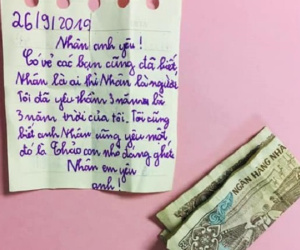 26/9/2019
Nhân anh yêu!
Có vẻ các bạn cũng đã biết,
Nhân là ai thì Nhân là người
Tôi đã yêu thầm 3 năm là
3 năm trời của tôi. Tôi cũng
biết anh Nhân cũng yêu một
đó là Thảo con nhỏ đáng ghét
Nhân em yêu
anh!
NGÂN HÀNG NHÀ